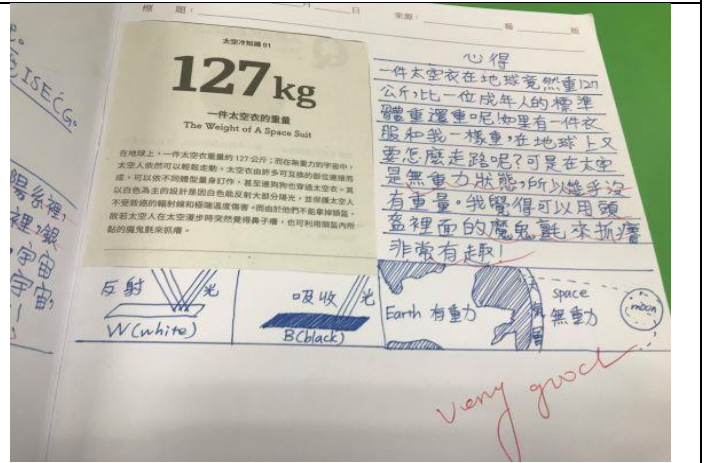 標 題：
月 日
來源：
報
版
太空冷知識 01
127kg
一件太空衣的重量
The Weight of A Space Suit
在地球上，一件太空衣重量約 127 公斤；而在無重力的宇宙中，
太空人依然可以輕鬆走動。太空衣由許多可互換的部位連接而
成，可以依不同體型量身訂作，甚至連狗狗也穿過太空衣。其
以白色為主的設計是因白色能反射大部分陽光，並保護太空人
不受致癌的輻射線和極端溫度傷害。而由於他們不能拿掉頭盔，
故若太空人在太空漫步時突然覺得鼻子癢，也可利用頭盔內所
黏的魔鬼氈來抓癢。
心得
一件太空衣在地球竟然重127
公斤,比一位成年人的標準
體重還重呢!如里有一件衣
服和我一樣重,在地球上又
要怎麼走路呢?可是在太空
是無重力狀態,所以幾乎沒
有重量。我覺得可以用頭
盔裡面的魔鬼氈來抓癢
非常有趣!
ISECG。
陽系裡,
裡,銀
宇宙
宇宙,
反射 光
W(white)
吸收 光
B(black)
Earth 有重力
大氣層
space
無重力
moon
very good